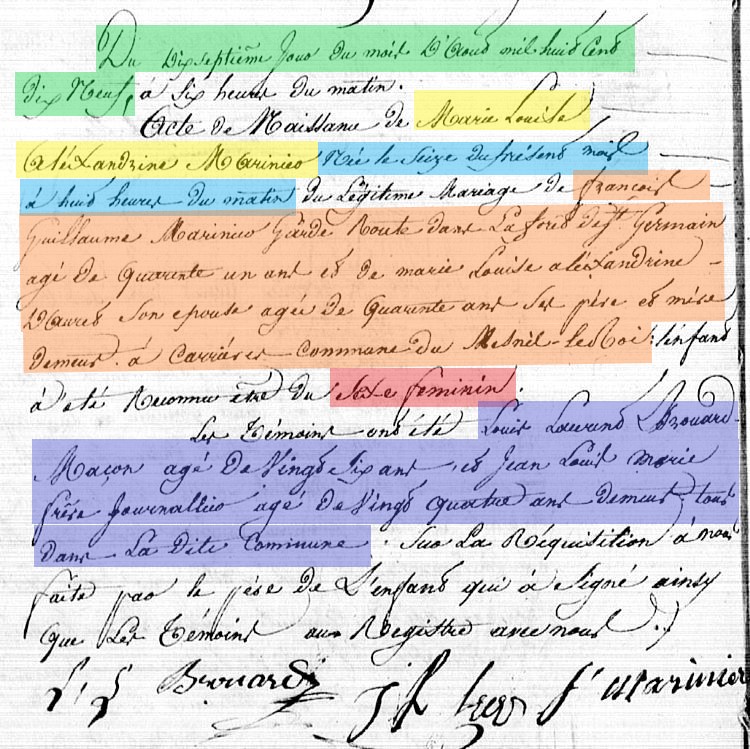 Du Dixseptième Jour du mois D'Aout mil huid Cend
dix Neuf, à Six heures du matin.
Acte de Naissance de Marie Louise
Aléxandrine Marinier Née le Seize du présend mois
à huid heures du matin du Légitime Mariage de françois
Guillaume Marinier Garde Route dans La forêt de St. Germain
agé De Quarente un ans et de marie Louise aléxandrine
Son epouse agée de Quarente ans Ses père et mère
demeurt. à Carrières commune du Mesnil-le-Roi; l'enfand
à été Reconnu être du Sexe feminin.
Les Témoins ond été Louis Laurend Brouard
Maçon agé De Vingd Six ans et Jean Louis marie
frère Journallier agé De Vingd quatre ans demeurt. tous
Dans La Dite Commune. Sur La Réquisition à nous
faite par le père De L'enfand qui à Signé ainsy
Que Les Témoins au Registre avec nous
L L Brouard J L f Marinier